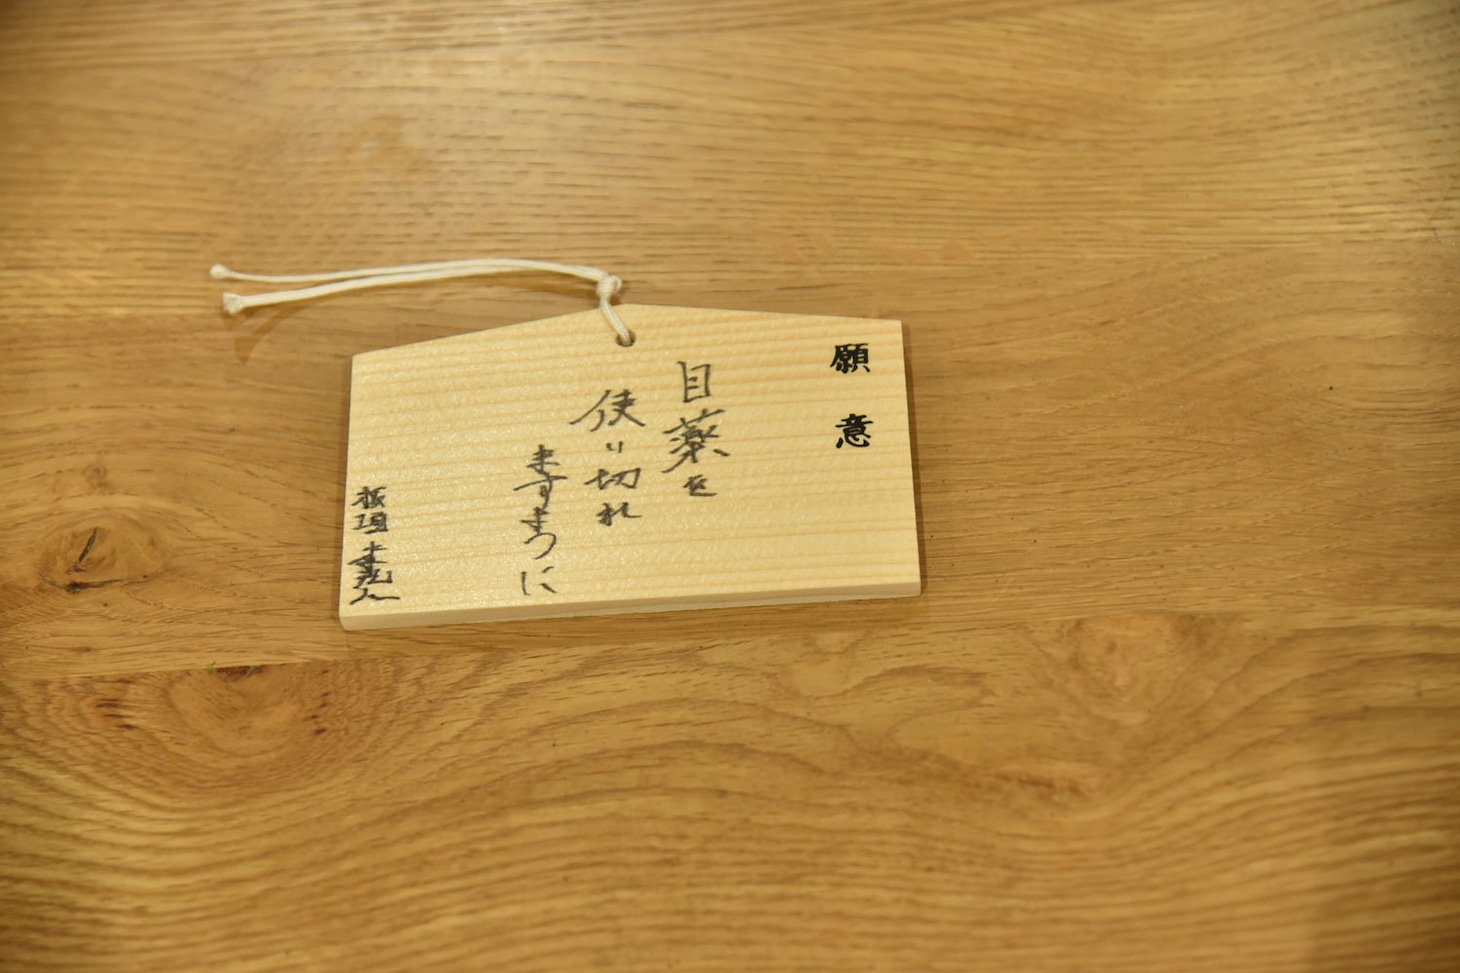 願意
目薬を
使い切れ
ますように
板垣李光人